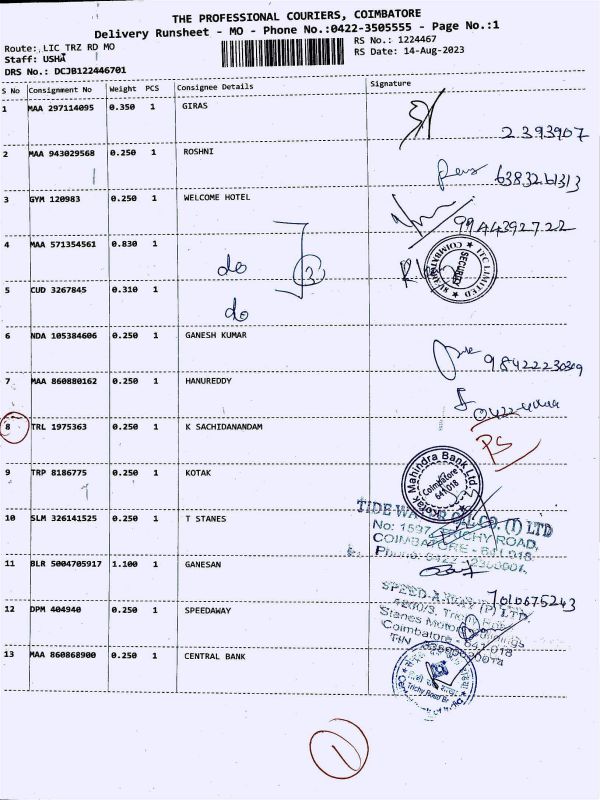 THE PROFESSIONAL COURIERS, COIMBATORE
Delivery Runsheet - MO - Phone No.:0422-3505555 - Page No.:1
Route: LIC TRZ RD MO
RS No.: 1224467
Staff: USHA
RS Date: 14-Aug-2023
DRS No.: DCJB122446701
S No Consignment No Weight PCS Consignee Details Signature
1 MAA 297114095 0.350 1 GIRAS
2393907
2 MAA 943029568 0.250 1 ROSHNI
6383261313
3 GYM 120983 0.250 1 WELCOME HOTEL
9944392722
4 MAA 571354561 0.830 1
do
3
ITC LIMITED
SECURITY
5 CUD 3267845 0.310 1
do
6 NDA 105384606 0.250 1 GANESH KUMAR
7 MAA 860880162 0.250 1 HANUREDDY
8 TRL 1975363 0.250 1 K SACHIDANANDAM
PS
9 TRP 8186775 0.250 1 KOTAK
Kotak Mahindra Bank Ltd
Coimbatore
641 018
10 SLM 326141525 0.250 1 T STANES
TIDE WATER OIL CO. (I) LTD
No: 1597, TRICHY ROAD,
COIMBATORE - 641 018
11 BLR 5004705917 1.100 1 GANESAN
7010675243
12 DPM 404940 0.250 1 SPEEDAWAY
SPEED-A-WAY (P) LTD
Stanes Motor Buildings
Coimbatore - 641 018
TIN
13 MAA 860868900 0.250 1 CENTRAL BANK
Trichy Road Br
1